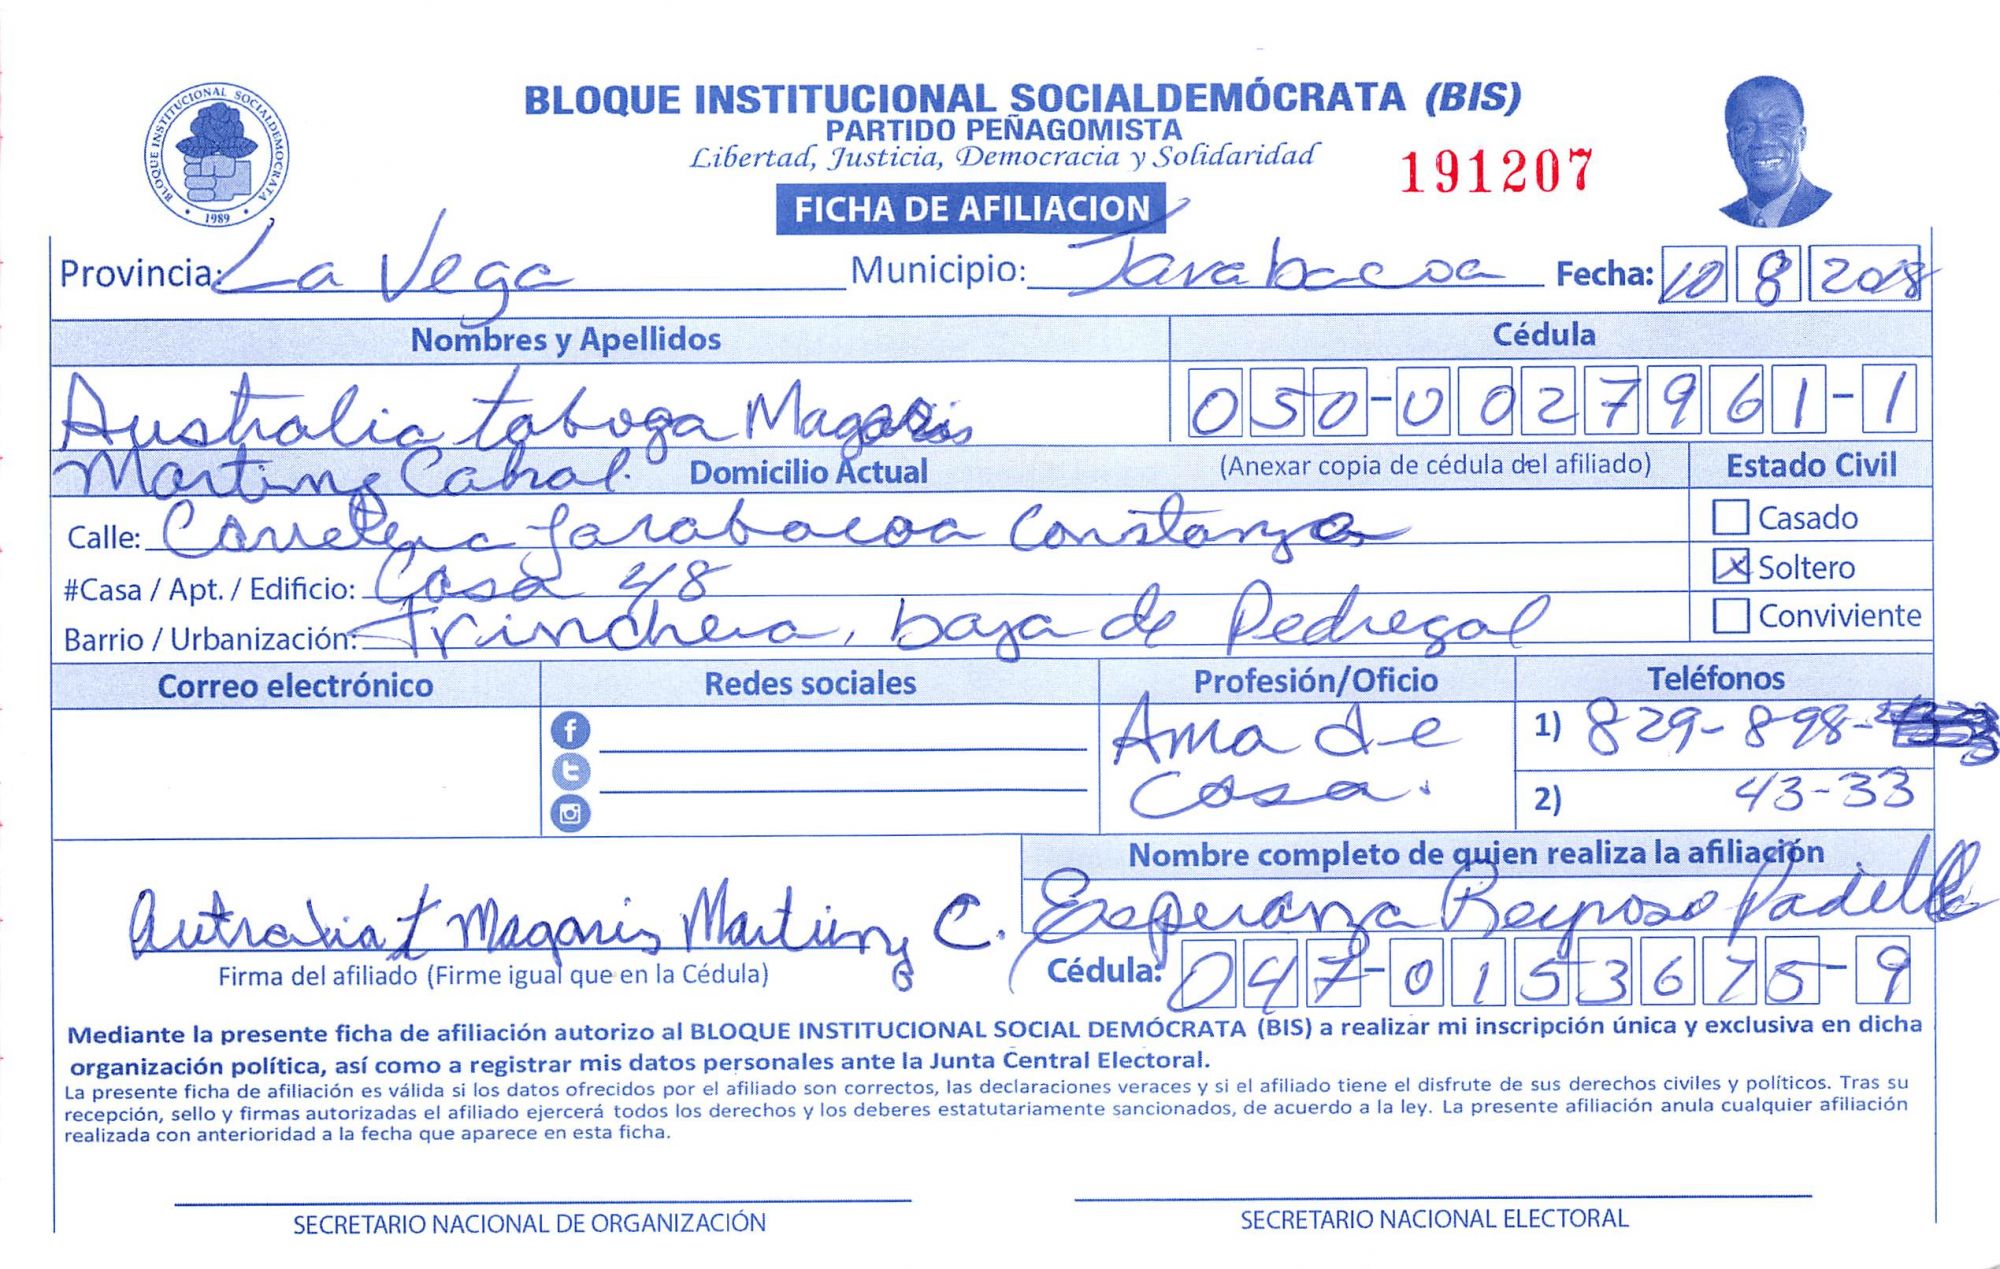 BLOQUE INSTITUCIONAL SOCIALDEMÓCRATA 1989
BLOQUE INSTITUCIONAL SOCIALDEMÓCRATA (BIS)
PARTIDO PEÑAGOMISTA
Libertad, Justicia, Democracia y Solidaridad
191207
FICHA DE AFILIACION
Provincia: La Vega Municipio: Jarabacoa Fecha: 10 8 2018
Nombres y Apellidos Cédula
Australia taboga Magaris 050-0027961-1
Martinez Cabral. Domicilio Actual (Anexar copia de cédula del afiliado) Estado Civil
Calle: Carretera Jarabacoa Constanza Casado
#Casa / Apt. / Edificio: Casa 48 Soltero
Barrio / Urbanización: Trinchera, baja de Pedregal Conviviente
Correo electrónico Redes sociales Profesión/Oficio Teléfonos
Ama de 1) 829-898-
Casa. 2) 43-33
Nombre completo de quien realiza la afiliación
Autralia t Magaris Martinez C. Esperanza Reynoso Padilla
Firma del afiliado (Firme igual que en la Cédula) Cédula: 047-0153675-9
Mediante la presente ficha de afiliación autorizo al BLOQUE INSTITUCIONAL SOCIAL DEMÓCRATA (BIS) a realizar mi inscripción única y exclusiva en dicha
organización política, así como a registrar mis datos personales ante la Junta Central Electoral.
La presente ficha de afiliación es válida si los datos ofrecidos por el afiliado son correctos, las declaraciones veraces y si el afiliado tiene el disfrute de sus derechos civiles y políticos. Tras su
recepción, sello y firmas autorizadas el afiliado ejercerá todos los derechos y los deberes estatutariamente sancionados, de acuerdo a la ley. La presente afiliación anula cualquier afiliación
realizada con anterioridad a la fecha que aparece en esta ficha.
SECRETARIO NACIONAL DE ORGANIZACIÓN SECRETARIO NACIONAL ELECTORAL